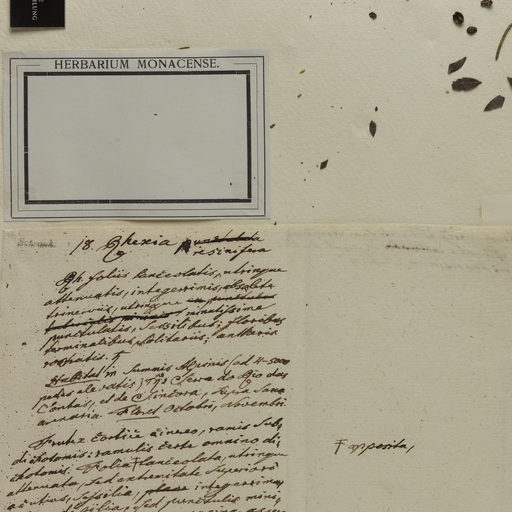 LUNG
HERBARIUM MONACENSE.
18. Rhexia punctulata
resinifera
Rh. foliis lanceolatis, utrinque
attenuatis, integerrimis, obsolete
trinerviis, utrinque
minutissime
punctulatis, sessilibus; floribus
terminalibus, solitariis; antheris
rostratis. ♄
Habitat in summis Alpinis (ad 4-5000
pedes elevatis)
Serra do Rio das
Contas, et de Sincora,
arenaria. Floret Octobri, Novembri
Frutex cortice cinereo, ramis sub
dichotomis: ramulis certe omnino di
chotomis. Folia lanceolata, utrinque
attenuata, sed extremitate superiori
acutius, sessilia, plana integerrima,
sed punctulis mini
opposita,